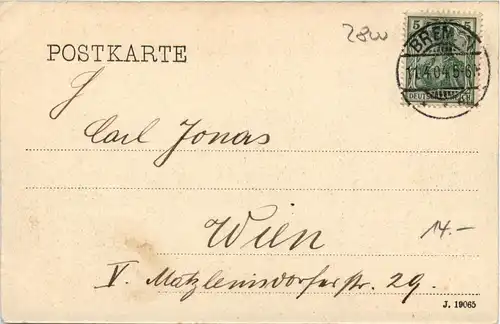 28w
5 5
BREMEN
11.4.04.5-6
DEUTSCHES
POSTKARTE
Carl Jonas
Wien
14.-
V. Matzleinsdorferstr. 29.
J. 19065